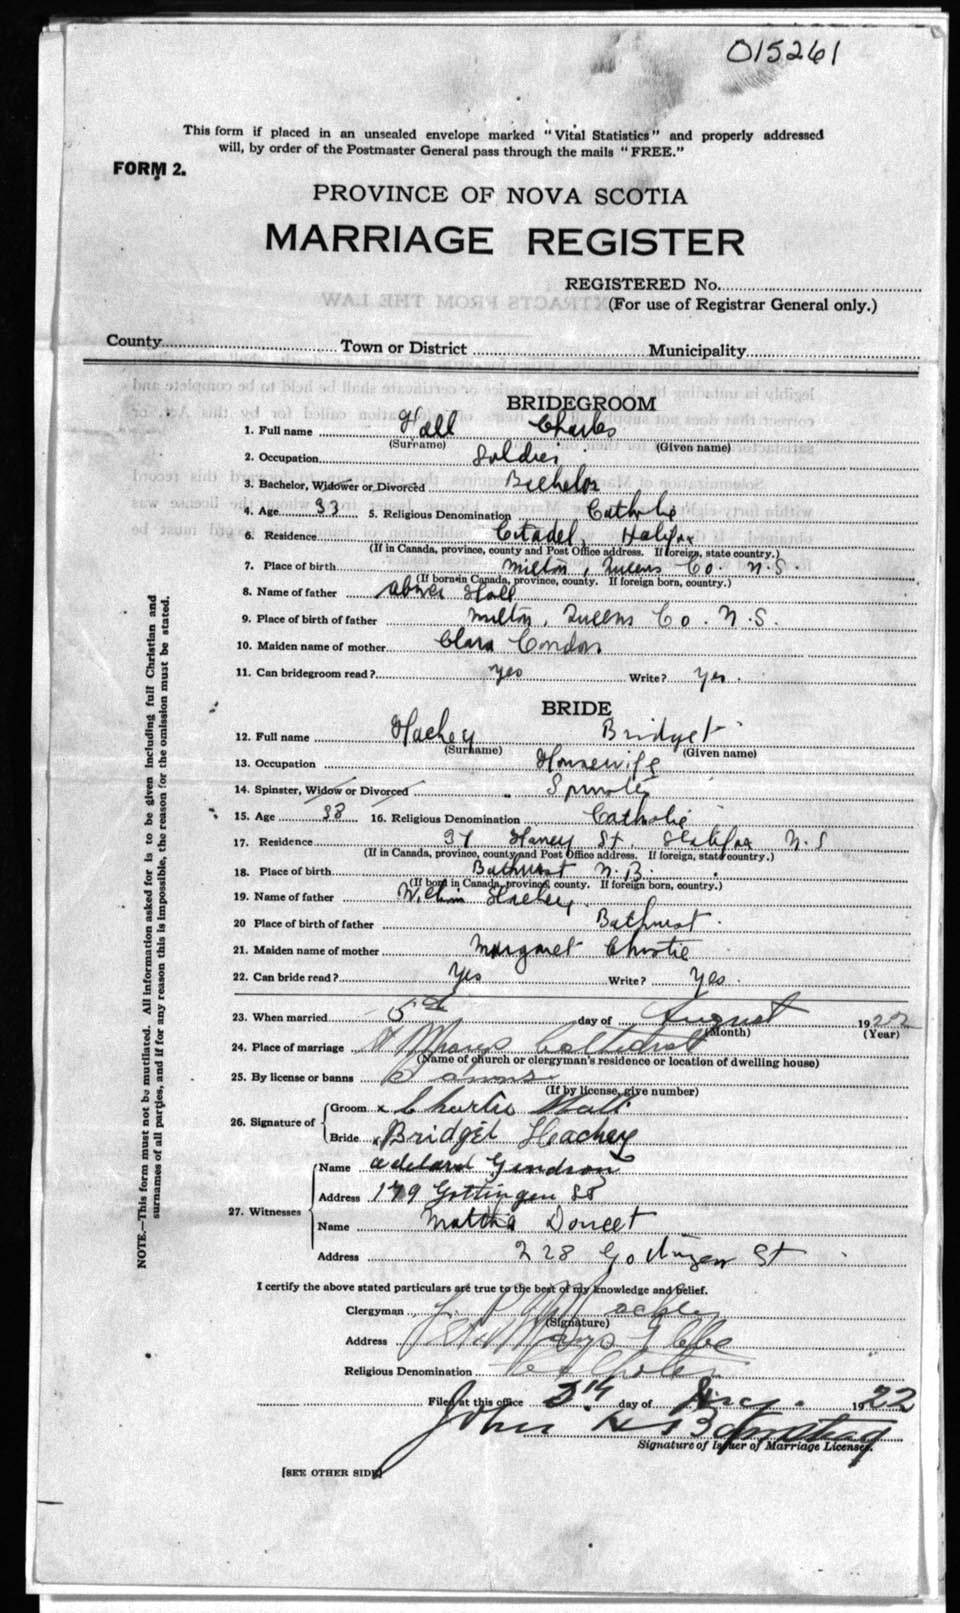 015261
This form if placed in an unsealed envelope marked "Vital Statistics" and properly addressed
will, by order of the Postmaster General pass through the mails "FREE."
FORM 2.
PROVINCE OF NOVA SCOTIA
MARRIAGE REGISTER
REGISTERED No.
(For use of Registrar General only.)
County Town or District Municipality
BRIDEGROOM
1. Full name Hall Charles
(Surname) (Given name)
2. Occupation Soldier
3. Bachelor, Widower or Divorced Bachelor
4. Age 33 5. Religious Denomination Catholic
6. Residence Citadel, Halifax
(If in Canada, province, county and Post Office address. If foreign, state country.)
7. Place of birth Milton, Queens Co. N.S.
(If born in Canada, province, county. If foreign born, country.)
8. Name of father Abner Hall
9. Place of birth of father Milton, Queens Co. N.S.
10. Maiden name of mother Clara Condon
11. Can bridegroom read? Yes Write? Yes.
BRIDE
12. Full name Hachey Bridget
(Surname) (Given name)
13. Occupation Housewife
14. Spinster, Widow or Divorced Spinster
15. Age 38 16. Religious Denomination Catholic
17. Residence 37 St, Halifax N.S
(If in Canada, province, county and Post Office address. If foreign, state country.)
18. Place of birth Bathurst N.B.
(If born in Canada, province, county. If foreign born, country.)
19. Name of father Hachey
20 Place of birth of father Bathurst
21. Maiden name of mother Margaret Christie
22. Can bride read? Yes Write? Yes.
23. When married 5th day of August 1922
(Month) (Year)
24. Place of marriage St Marys Cathedral
(Name of church or clergyman's residence or location of dwelling house)
25. By license or banns Banns
(If by license, give number)
26. Signature of
Groom x Charles Hall
Bride x Bridget Hachey
27. Witnesses
Name Adelard Gendron
Address 179 Gottingen St
Name Martha Doucet
Address 228 Gottingen St
I certify the above stated particulars are true to the best of my knowledge and belief.
Clergyman
(Signature)
Address St Marys Glebe
Religious Denomination Catholic
Filed at this office day of Aug. 1922
John
Signature of Issuer of Marriage Licenses.
[SEE OTHER SIDE]
NOTE.—This form must not be mutilated. All information asked for is to be given including full Christian and
surnames of all parties, and if for any reason this is impossible, the reason for the omission must be stated.